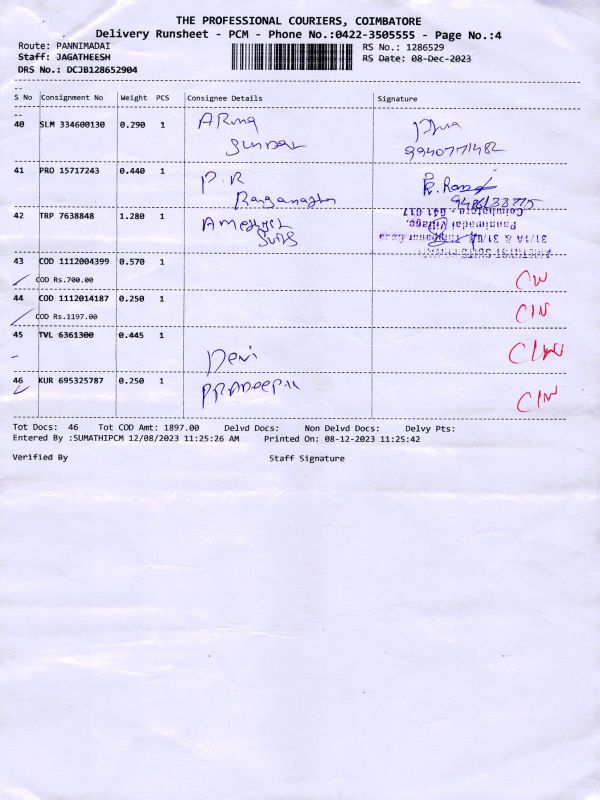 THE PROFESSIONAL COURIERS, COIMBATORE
Delivery Runsheet - PCM - Phone No.:0422-3505555 - Page No.:4
Route: PANNIMADAI RS No.: 1286529
Staff: JAGATHEESH RS Date: 08-Dec-2023
DRS No.: DCJB128652904
S No Consignment No Weight PCS Consignee Details Signature
40 SLM 334600130 0.290 1 ARUNA
SUNDAR
9940771482
41 PRO 15717243 0.440 1 P.R
Ranganathan
42 TRP 7638848 1.280 1 Amethyst
Suits
31/1A &
Pannimadai Village,
Coimbatore - 641 017
43 COD 1112004399 0.570 1
COD Rs.700.00
44 COD 1112014187 0.250 1 CIN
COD Rs.1197.00
45 TVL 6361300 0.445 1 Devi
46 KUR 695325787 0.250 1 PRADEEP.K CIN
Tot Docs: 46 Tot COD Amt: 1897.00 Delvd Docs: Non Delvd Docs: Delvy Pts:
Entered By :SUMATHIPCM 12/08/2023 11:25:26 AM Printed On: 08-12-2023 11:25:42
Verified By Staff Signature